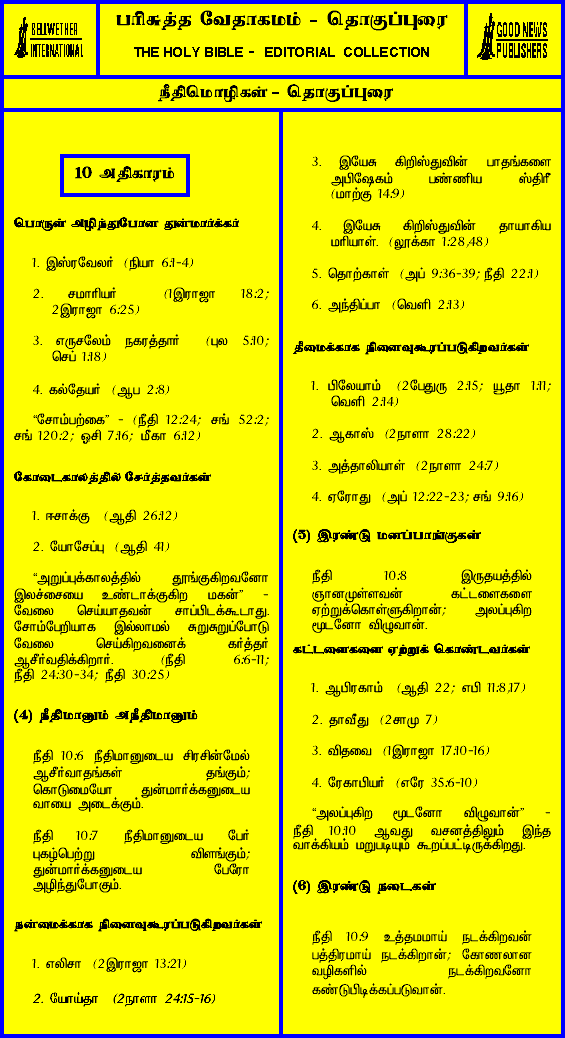 BELLWETHER
INTERNATIONAL
பரிசுத்த வேதாகமம் - தொகுப்புரை
THE HOLY BIBLE - EDITORIAL COLLECTION
GOOD NEWS
PUBLISHERS
நீதிமொழிகள் - தொகுப்புரை
10 அதிகாரம்
பொருள் அழிந்துபோன துன்மார்க்கர்
1. இஸ்ரவேலர் (நியா 6:1-4)
2. சமாரியர் (1இராஜா 18:2;
2இராஜா 6:25)
3. எருசலேம் நகரத்தார் (புல 5:10;
செப் 1:18)
4. கல்தேயர் (ஆப 2:8)
“சோம்பற்கை” - (நீதி 12:24; சங் 52:2;
சங் 120:2; ஓசி 7:16; மீகா 6:12)
கோடைகாலத்தில் சேர்த்தவர்கள்
1. ஈசாக்கு (ஆதி 26:12)
2. யோசேப்பு (ஆதி 41)
“அறுப்புக்காலத்தில் தூங்குகிறவனோ
இலச்சையை உண்டாக்குகிற மகன்” -
வேலை செய்யாதவன் சாப்பிடக்கூடாது.
சோம்பேறியாக இல்லாமல் சுறுசுறுப்போடு
வேலை செய்கிறவனைக் கர்த்தர்
ஆசீர்வதிக்கிறார். (நீதி 6:6-11;
நீதி 24:30-34; நீதி 30:25)
(4) நீதிமானும் அநீதிமானும்
நீதி 10:6 நீதிமானுடைய சிரசின்மேல்
ஆசீர்வாதங்கள் தங்கும்;
கொடுமையோ துன்மார்க்கனுடைய
வாயை அடைக்கும்.
நீதி 10:7 நீதிமானுடைய பேர்
புகழ்பெற்று விளங்கும்;
துன்மார்க்கனுடைய பேரோ
அழிந்துபோகும்.
நன்மைக்காக நினைவுகூரப்படுகிறவர்கள்
1. எலிசா (2இராஜா 13:21)
2. யோய்தா (2நாளா 24:15-16)
3. இயேசு கிறிஸ்துவின் பாதங்களை
அபிஷேகம் பண்ணிய ஸ்திரீ
(மாற்கு 14:9)
4. இயேசு கிறிஸ்துவின் தாயாகிய
மரியாள். (லூக்கா 1:28,48)
5. தொற்காள் (அப் 9:36-39; நீதி 22:1)
6. அந்திப்பா (வெளி 2:13)
தீமைக்காக நினைவுகூரப்படுகிறவர்கள்
1. பிலேயாம் (2பேதுரு 2:15; யூதா 1:11;
வெளி 2:14)
2. ஆகாஸ் (2நாளா 28:22)
3. அத்தாலியாள் (2நாளா 24:7)
4. ஏரோது (அப் 12:22-23; சங் 9:16)
(5) இரண்டு மனப்பாங்குகள்
நீதி 10:8 இருதயத்தில்
ஞானமுள்ளவன் கட்டளைகளை
ஏற்றுக்கொள்ளுகிறான்; அலப்புகிற
மூடனோ விழுவான்.
கட்டளைகளை ஏற்றுக் கொண்டவர்கள்
1. ஆபிரகாம் (ஆதி 22; எபி 11:8,17)
2. தாவீது (2சாமு 7)
3. விதவை (1இராஜா 17:10-16)
4. ரேகாபியர் (எரே 35:6-10)
“அலப்புகிற மூடனோ விழுவான்” -
நீதி 10:10 ஆவது வசனத்திலும் இந்த
வாக்கியம் மறுபடியும் கூறப்பட்டிருக்கிறது.
(6) இரண்டு நடைகள்
நீதி 10:9 உத்தமமாய் நடக்கிறவன்
பத்திரமாய் நடக்கிறான்; கோணலான
வழிகளில் நடக்கிறவனோ
கண்டுபிடிக்கப்படுவான்.